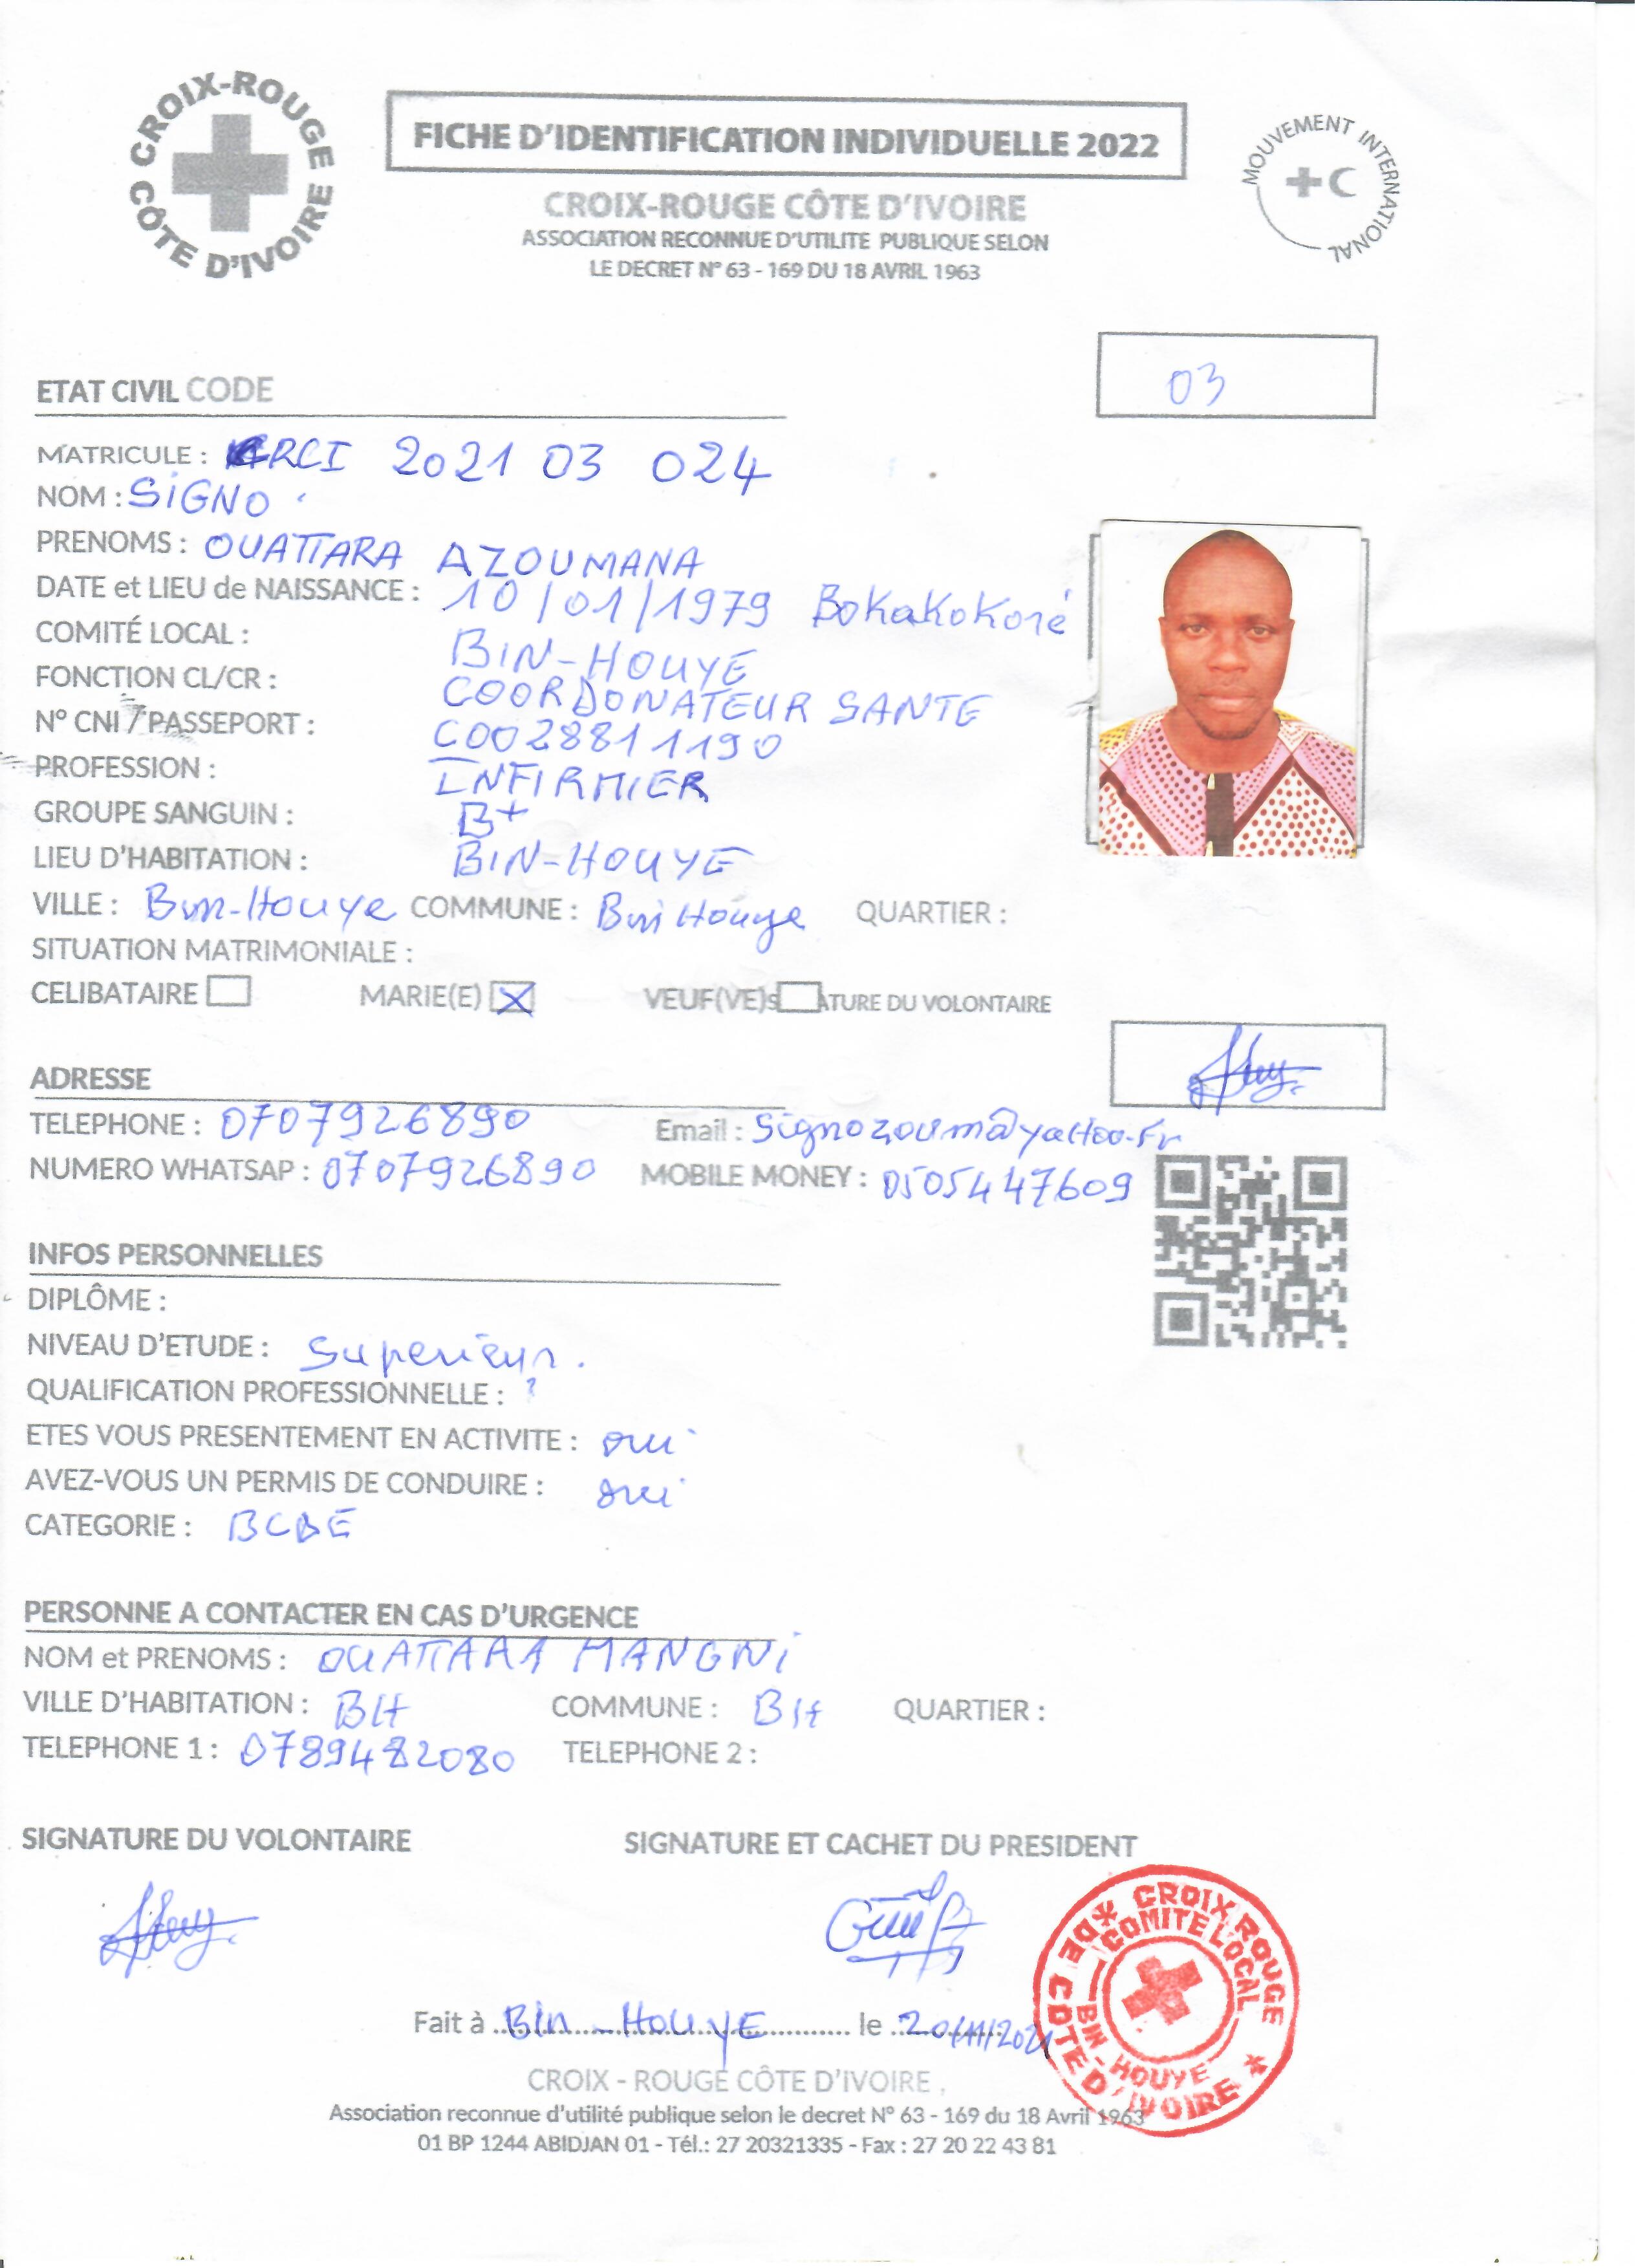 CROIX-ROUGE CÔTE D'IVOIRE
FICHE D'IDENTIFICATION INDIVIDUELLE 2022
MOUVEMENT INTERNATIONAL
CROIX-ROUGE CÔTE D'IVOIRE
ASSOCIATION RECONNUE D'UTILITE PUBLIQUE SELON
LE DECRET N° 63 - 169 DU 18 AVRIL 1963
03
ETAT CIVIL CODE
MATRICULE : CRCI 2021 03 024
NOM : SIGNO
PRENOMS : OUATTARA AZOUMANA
DATE et LIEU de NAISSANCE : 10/01/1979 BoKaKoKoré
COMITÉ LOCAL : BIN-HOUYE
FONCTION CL/CR : COORDONATEUR SANTE
N° CNI / PASSEPORT : C0028811190
PROFESSION : INFIRMIER
GROUPE SANGUIN : B+
LIEU D'HABITATION : BIN-HOUYE
VILLE : Bin-Houye COMMUNE : Bin Houye QUARTIER :
SITUATION MATRIMONIALE :
CELIBATAIRE MARIE(E) X VEUF(VE)S ATURE DU VOLONTAIRE
ADRESSE
TELEPHONE : 0707926890 Email : Signozoum@yahoo.Fr
NUMERO WHATSAP : 0707926890 MOBILE MONEY : 0505447609
INFOS PERSONNELLES
DIPLÔME :
NIVEAU D'ETUDE : Superieur.
QUALIFICATION PROFESSIONNELLE : ?
ETES VOUS PRESENTEMENT EN ACTIVITE : oui
AVEZ-VOUS UN PERMIS DE CONDUIRE : oui
CATEGORIE : BCDE
PERSONNE A CONTACTER EN CAS D'URGENCE
NOM et PRENOMS : OUATTARA MANGNI
VILLE D'HABITATION : BH COMMUNE : BH QUARTIER :
TELEPHONE 1 : 0789482080 TELEPHONE 2 :
SIGNATURE DU VOLONTAIRE SIGNATURE ET CACHET DU PRESIDENT
CROIX ROUGE DE COTE D'IVOIRE
COMITE LOCAL BIN-HOUYE
Fait à Bin-HouYE le 20/11/2021
CROIX - ROUGE CÔTE D'IVOIRE
Association reconnue d'utilité publique selon le decret N° 63 - 169 du 18 Avril 1963
01 BP 1244 ABIDJAN 01 - Tél.: 27 20321335 - Fax : 27 20 22 43 81